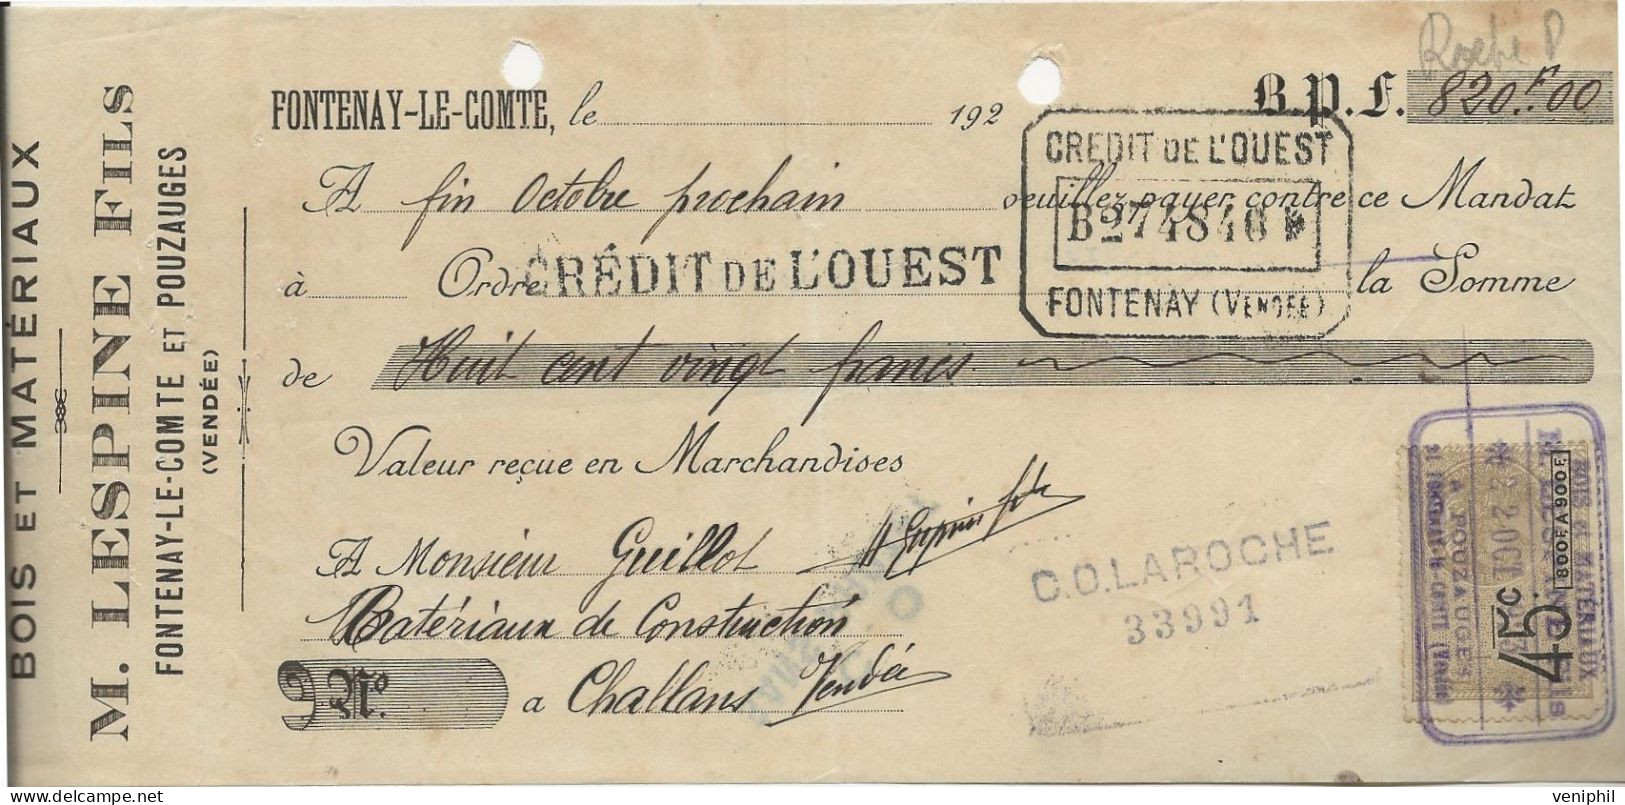 BOIS ET MATÉRIAUX
M. LESPINE FILS
FONTENAY-LE-COMTE ET POUZAUGES
(VENDÉE)
FONTENAY-LE-COMTE, le 192
B.P.F. 820 F 00
A fin Octobre prochain veuillez payer contre ce Mandat
à Ordre CRÉDIT DE L'OUEST la Somme
de Huit cent vingt francs
Valeur reçue en Marchandises
A Monsieur Guillot
Matériaux de Construction
No a Challans Vendée
CREDIT DE L'OUEST
B274840
FONTENAY (VENDÉE)
C.O. LAROCHE
33991
BOIS ET MATÉRIAUX
A POUZAUGES
45c
800F. A 900F.
veniphil